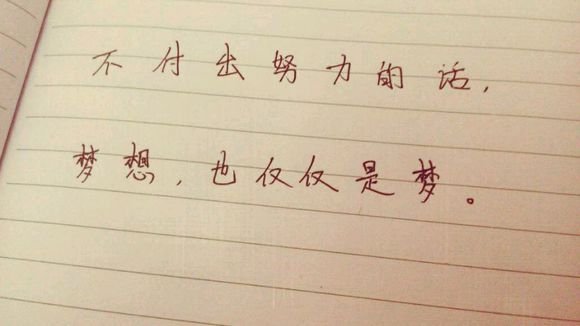 不付出努力的话，
梦想，也仅仅是梦。